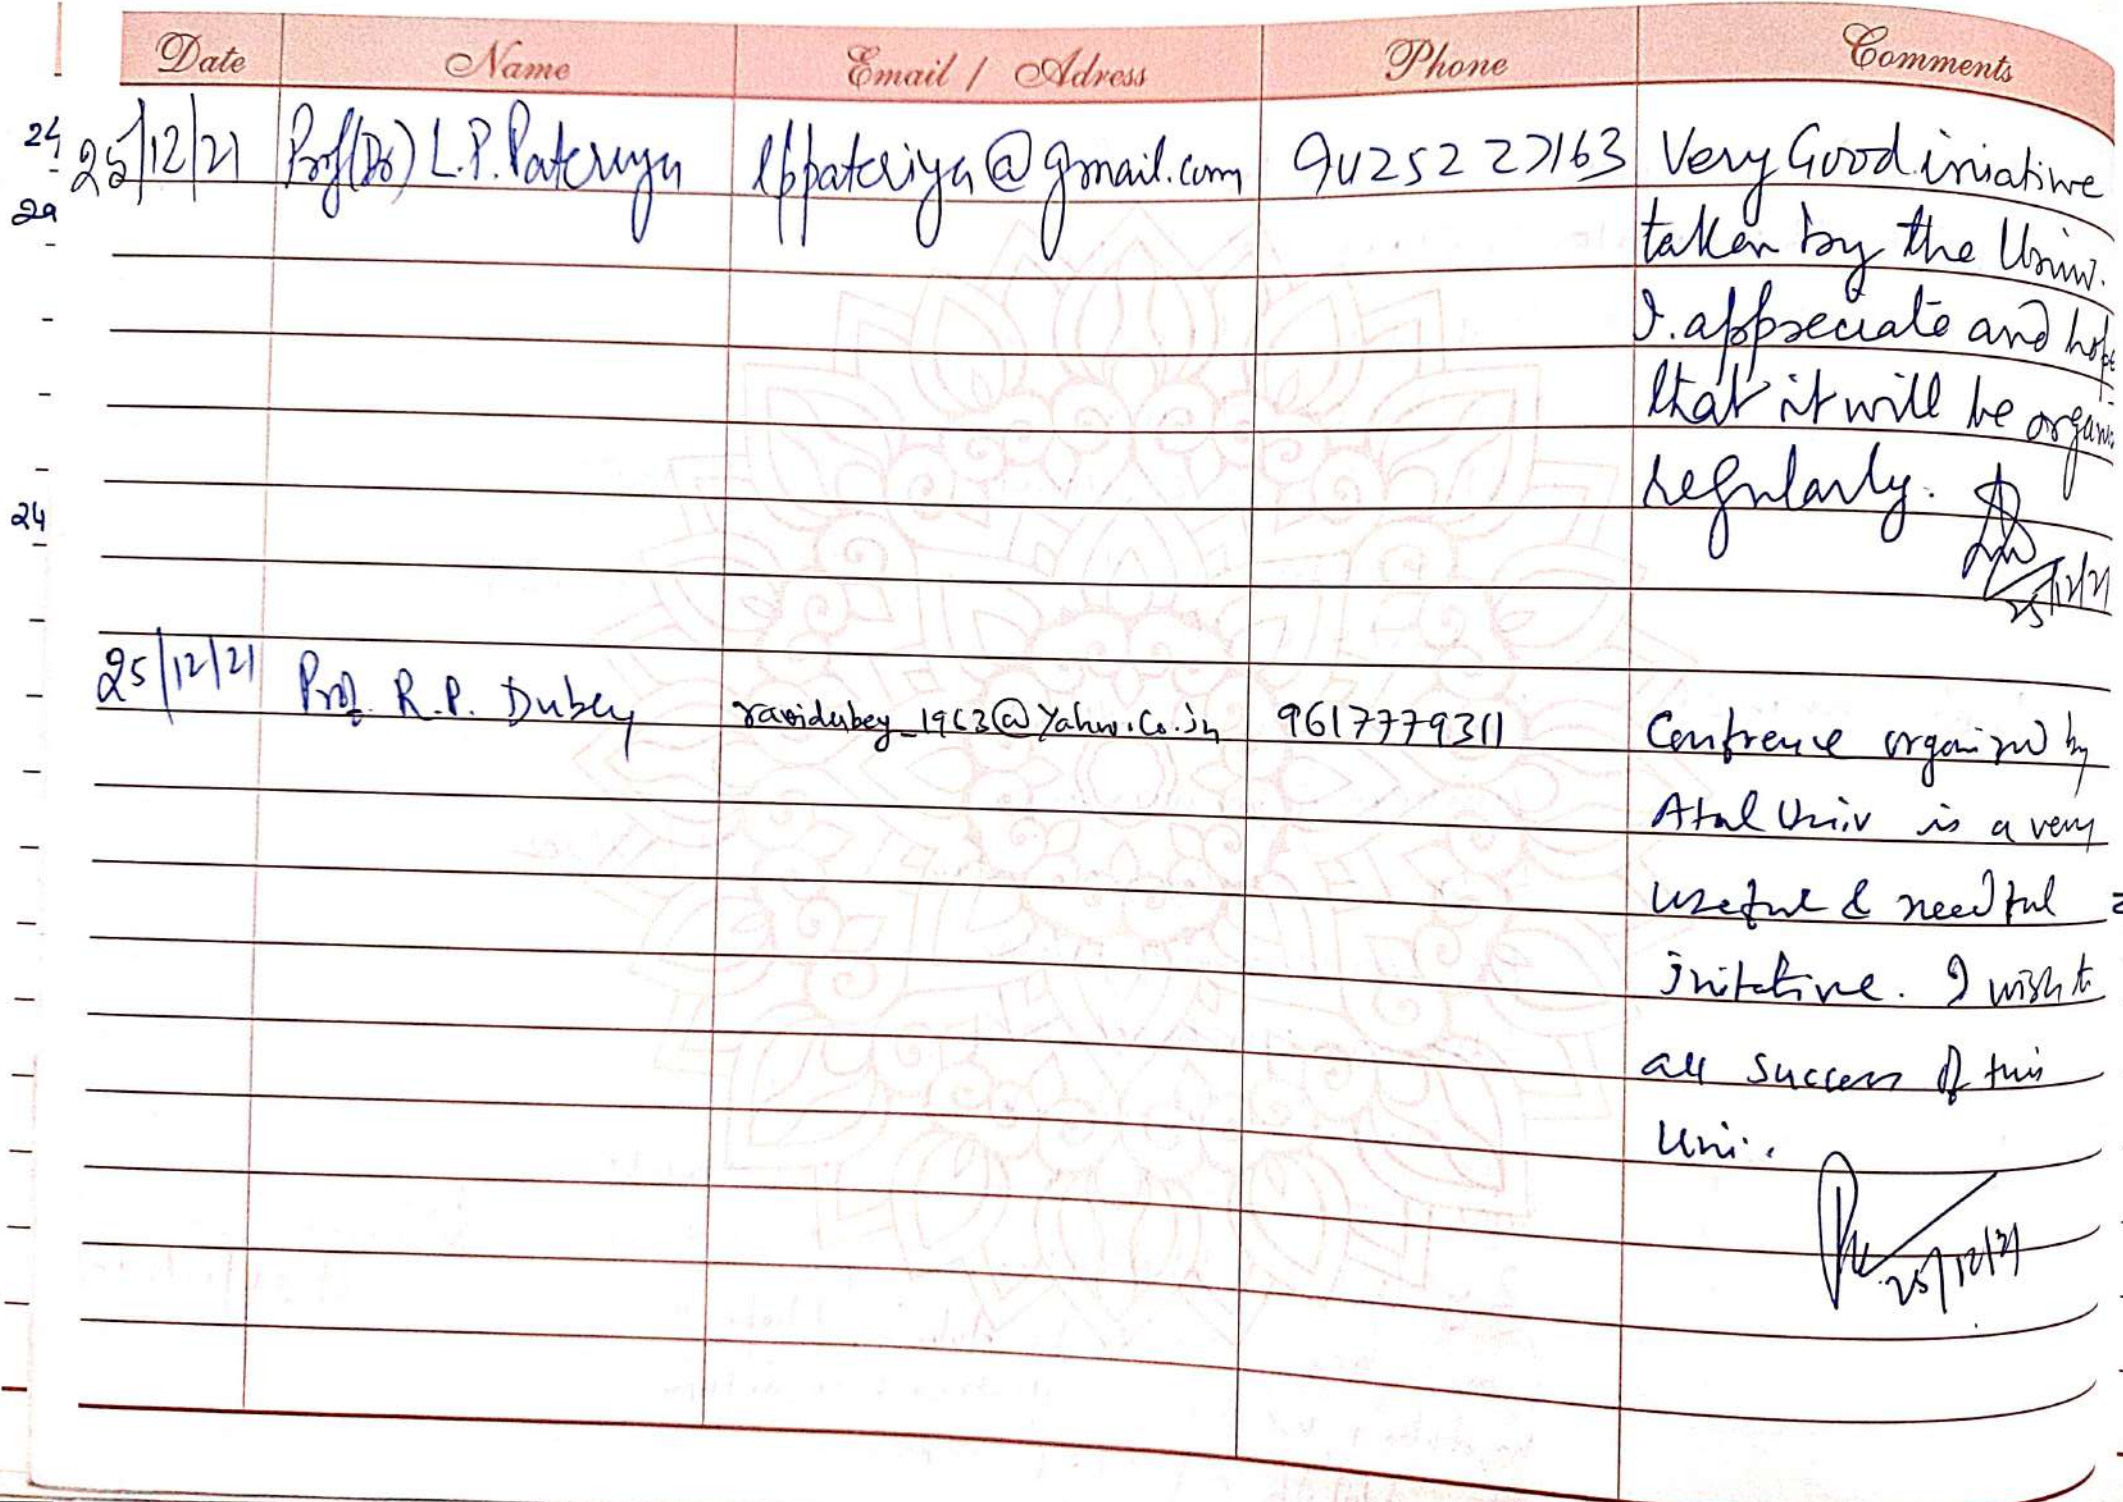 Date Name Email / Adress Phone Comments
24
25/12/21 Prof(Dr) L.P. Pateriya lppateriya@gmail.com 9425227163 Very Good iniative
29
taken by the Univ.
I. appreciate and hope
that it will be organi
regularly.
24
25/12/21
25/12/21 Prof. R.P. Dubey ravidubey_1963@yahoo.co.in 9617779311 Confrence organized by
Atal Univ is a very
useful & needful
initative. I wish to
all success of this
Uni.
25/12/21